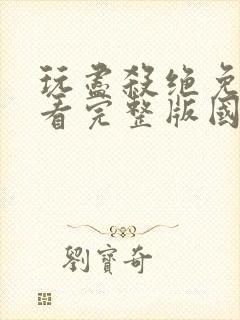 玩盡殺绝免
看完整版國
劉寶奇